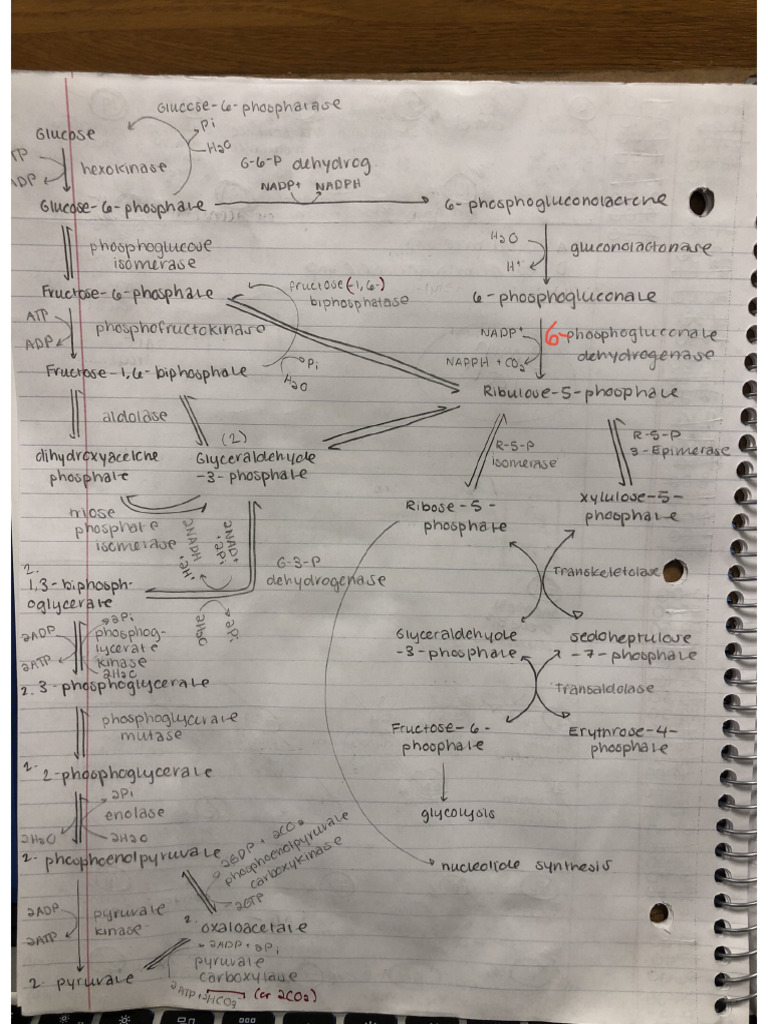 Glucose-6-phosphatase
Glucose
Pi
H2O
TP
hexokinase
DP
G-6-P dehydrog
NADP+ NADPH
Glucose-6-phosphate
6-phosphogluconolactone
H2O
gluconolactonase
H+
phosphoglucose
isomerase
Fructose-6-phosphate
fructose(-1,6-)
biphosphatase
6-phosphogluconate
ATP
phosphofructokinase
ADP
NADP+
6-phosphogluconate
dehydrogenase
NADPH + CO2
Pi
H2O
Fructose-1,6-biphosphate
Ribulose-5-phosphate
aldolase
(2)
dihydroxyacetone
phosphate
Glyceraldehyde
-3-phosphate
R-5-P
isomerase
R-5-P
3-Epimerase
Ribose-5-
phosphate
xylulose-5-
phosphate
triose
phosphate
isomerase
2NADH
2NAD+
G-3-P
dehydrogenase
2H2O
2Pi
Transketolase
2.
1,3-biphosph-
oglycerate
2ADP
2ATP
2Pi
phosphog-
lycerate
kinase
2H2O
Glyceraldehyde
-3-phosphate
sedoheptulose
-7-phosphate
Transaldolase
2. 3-phosphoglycerate
phosphoglycerate
mutase
Fructose-6-
phosphate
Erythrose-4-
phosphate
2. 2-phosphoglycerate
2Pi
enolase
2H2O
2H2O
glycolysis
2. phosphoenolpyruvate
2GDP + 2CO2
phosphoenolpyruvate
carboxykinase
2GTP
nucleotide synthesis
2ADP
2ATP
pyruvate
kinase
2. oxaloacetate
2ADP + 2Pi
pyruvate
carboxylase
2ATP + 2HCO3 (or 2CO2)
2. pyruvate